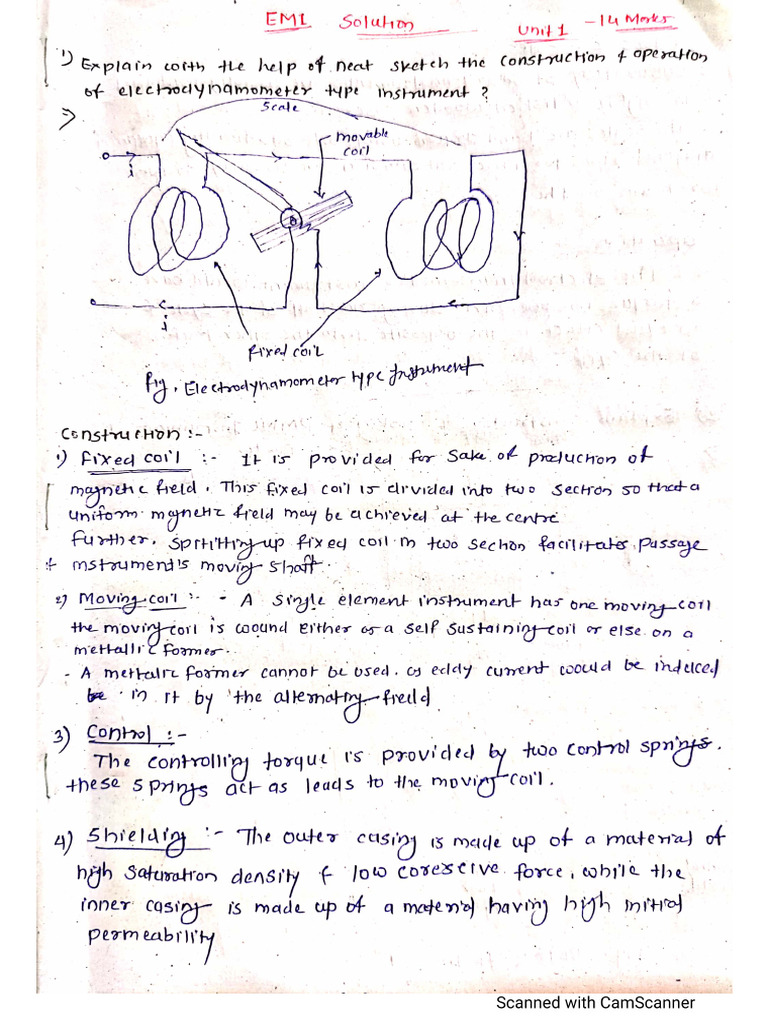 EMI Solution Unit 1 - 14 Marks
1) Explain with the help of neat sketch the construction & operation
of electrodynamometer type instrument ?
=>
Scale
movable
coil
i
i
fixed coil
fig. Electrodynamometer type Instrument
Construction :-
1) Fixed coil :- It is provided for sake of production of
magnetic field. This fixed coil is divided into two section so that a
uniform magnetic field may be achieved at the centre
further, splitting up fixed coil in two section facilitates passage
of instrument's moving shaft.
2) Moving coil :- - A single element instrument has one moving coil
the moving coil is wound either as a self sustaining coil or else on a
mettallic former.
- A mettalic former cannot be used as eddy current would be indeced
in it by the alternating field.
3) Control :-
The controlling torque is provided by two control springs.
these springs act as leads to the moving coil.
4) Shielding :- The outer casing is made up of a material of
high saturation density & low coresive force, while the
inner casing is made up of a material having high initial
permeability
Scanned with CamScanner